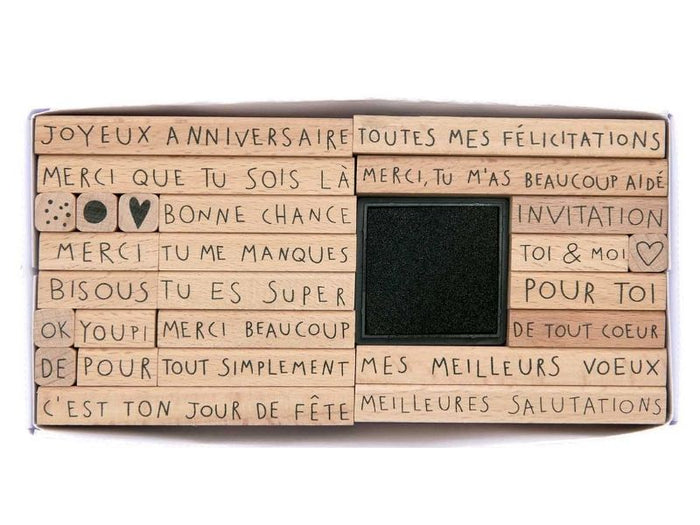 JOYEUX ANNIVERSAIRE
TOUTES MES FÉLICITATIONS
MERCI QUE TU SOIS LÀ
MERCI, TU M'AS BEAUCOUP AIDÉ
BONNE CHANCE
INVITATION
MERCI
TU ME MANQUES
TOI & MOI
BISOUS
TU ES SUPER
POUR TOI
OK
YOUPI
MERCI BEAUCOUP
DE TOUT COEUR
DE
POUR
TOUT SIMPLEMENT
MES MEILLEURS VOEUX
C'EST TON JOUR DE FÊTE
MEILLEURES SALUTATIONS